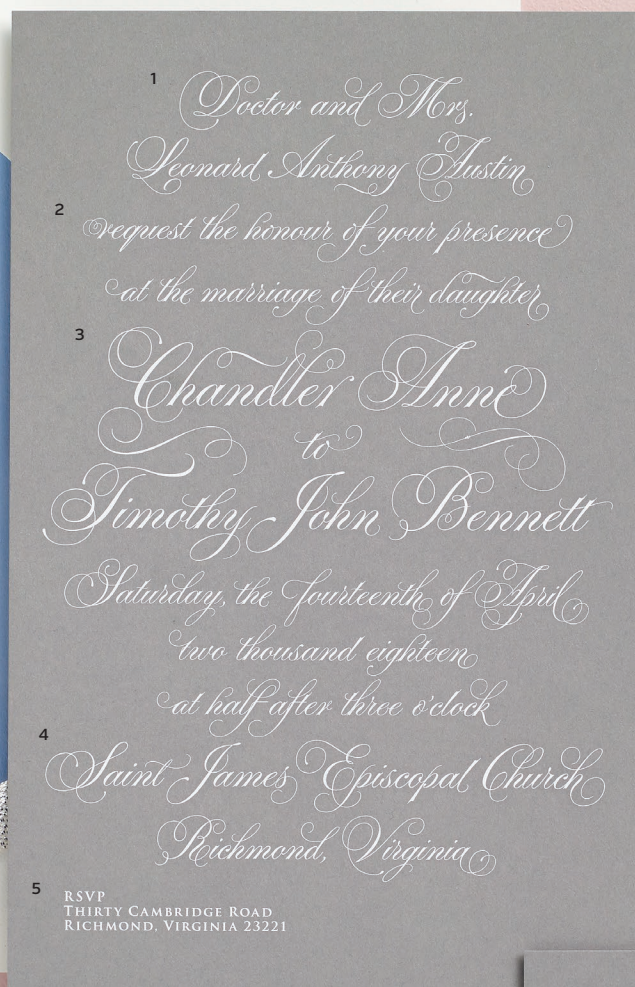 1
Doctor and Mrs.
Leonard Anthony Austin
2
request the honour of your presence
at the marriage of their daughter
3
Chandler Anne
to
Timothy John Bennett
Saturday, the fourteenth of April
two thousand eighteen
at half after three o'clock
4
Saint James Episcopal Church
Richmond, Virginia
5
RSVP
THIRTY CAMBRIDGE ROAD
RICHMOND, VIRGINIA 23221